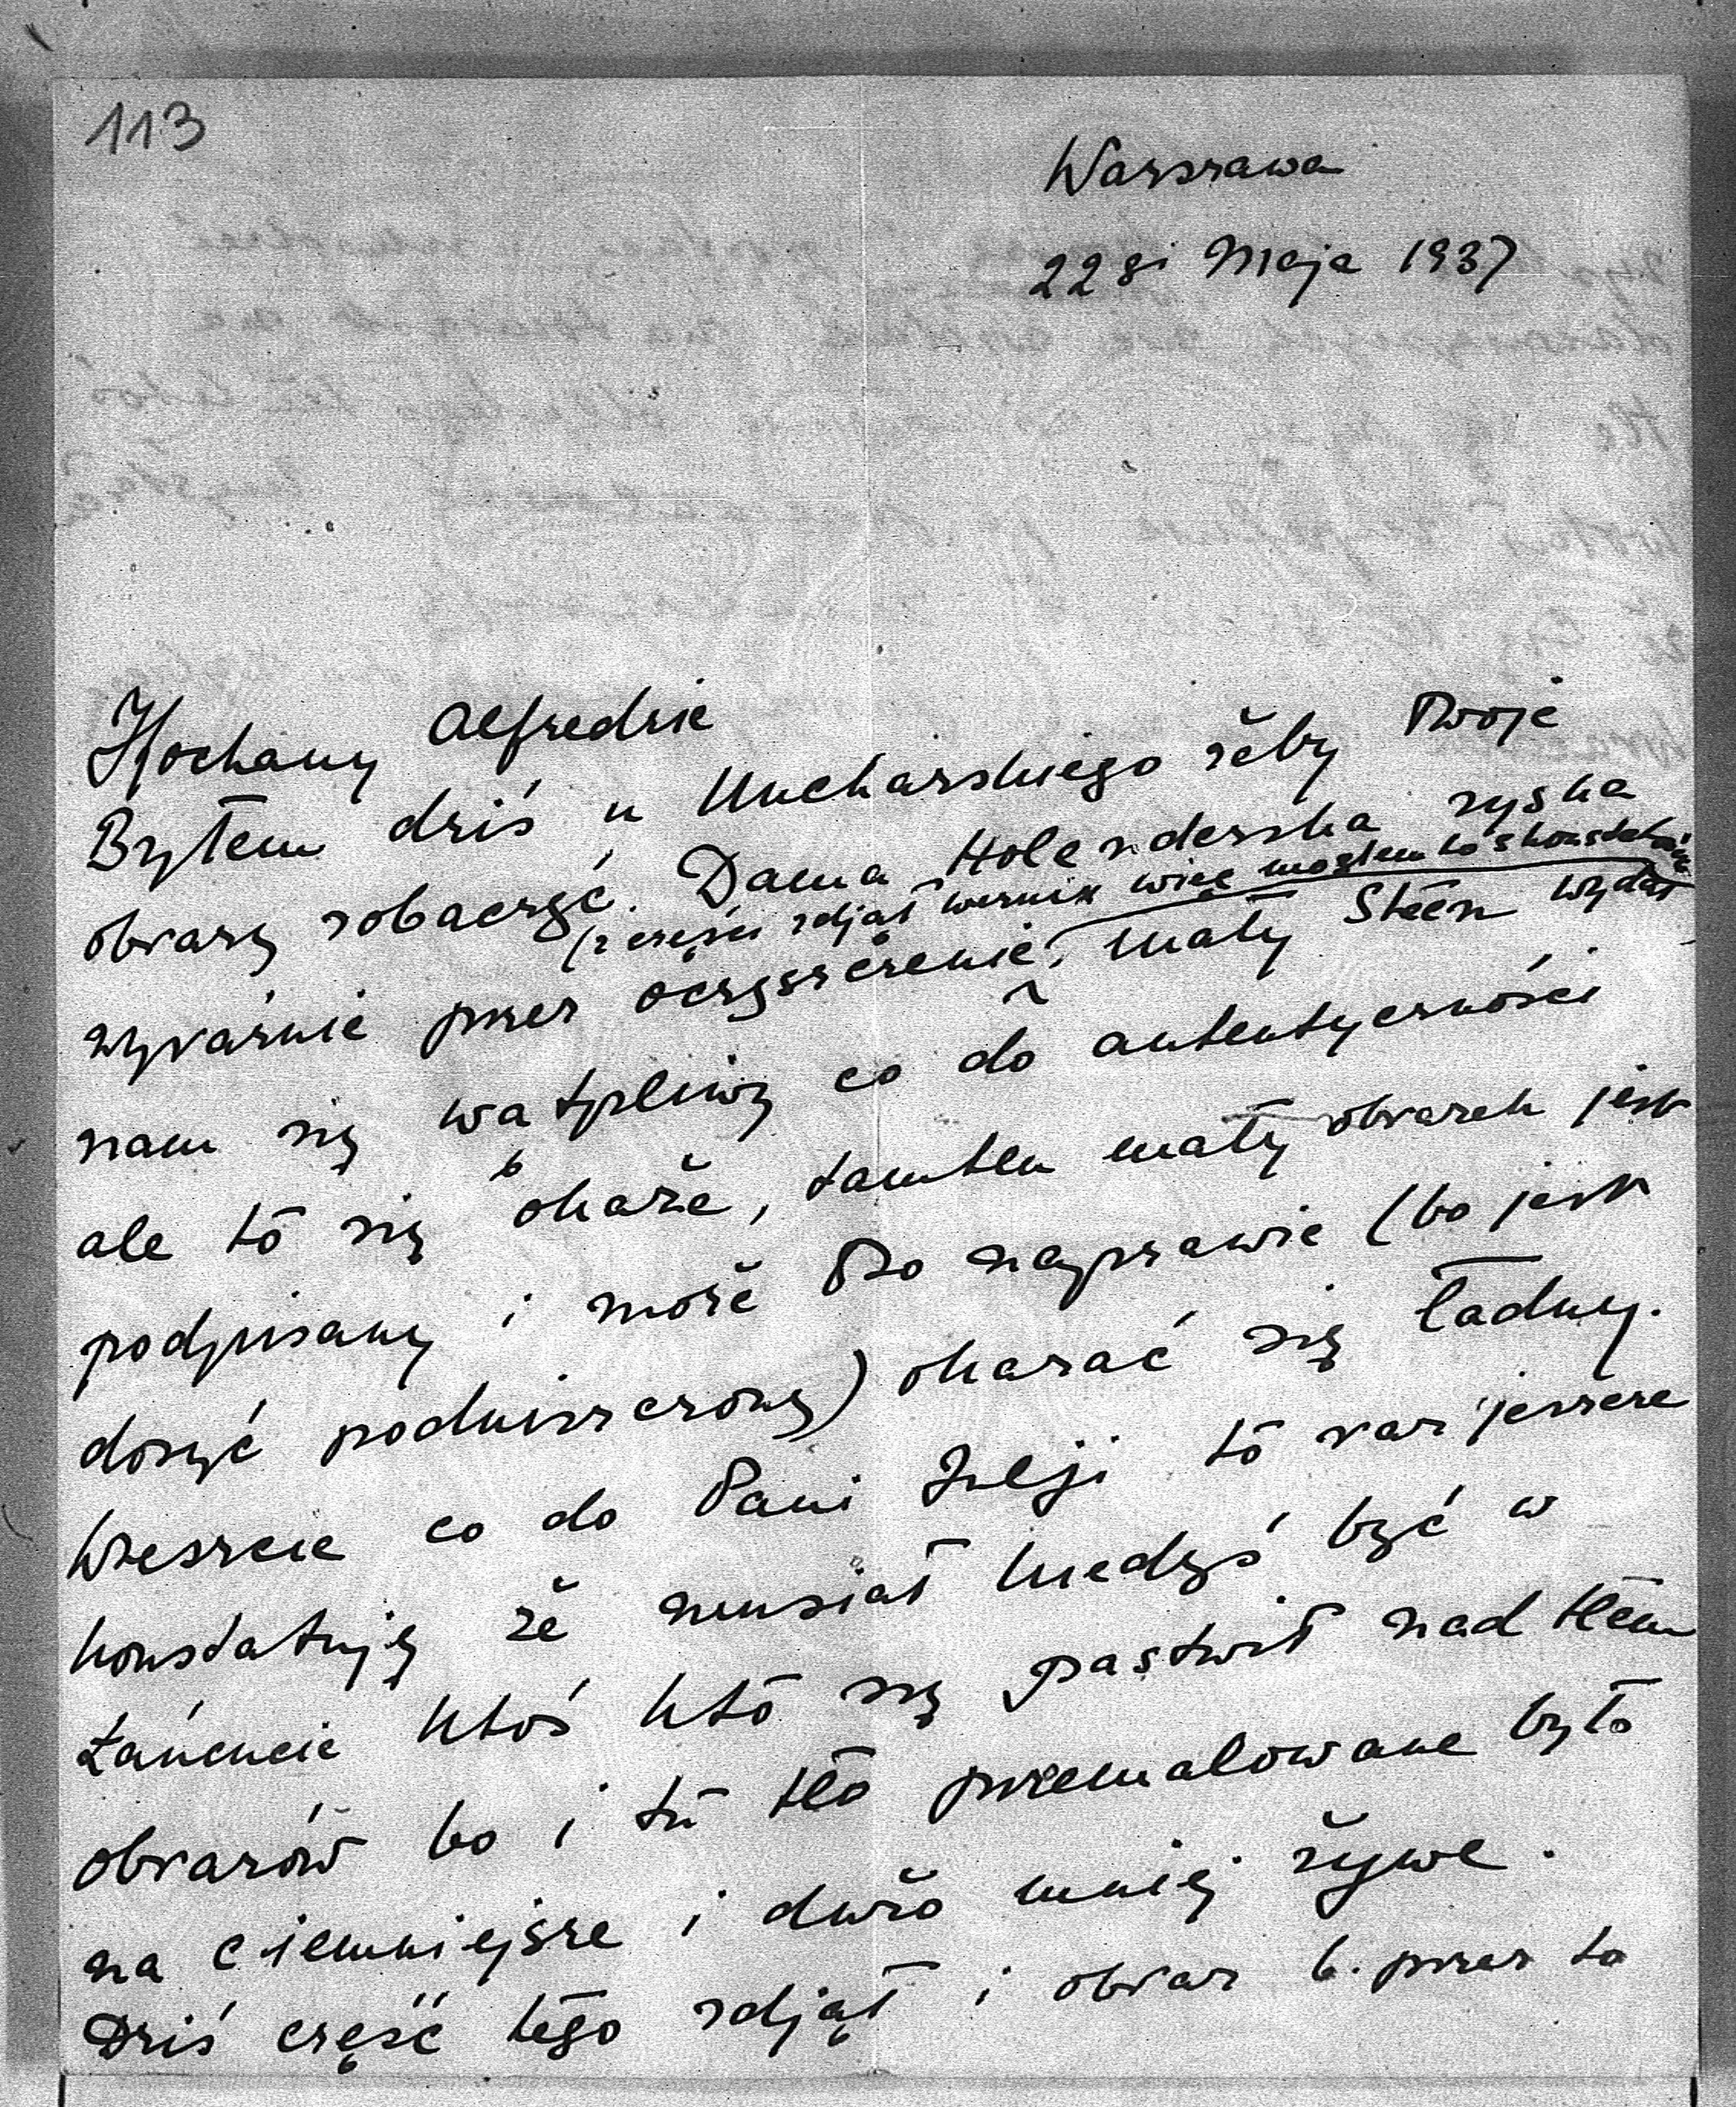 113
Warszawa
22gi Maja 1937
Kochany Alfredzie
Byłem dziś u Kucharskiego żeby Twoje
obrazy zobaczyć. Dama Holenderska zyska
(z części zdjął wernix więc mogłem to skonstatować)
wyraźnie przez oczyszczenie, mały Steen wydał
nam się wątpliwy co do autentyczności
ale to się okaże, tamten mały obrazek jest
podpisany i może po naprawie (bo jest
dosyć podniszczony) okazać się ładny.
Wreszcie co do Pani Julji to raz jeszcze
konstatuję że musiał kiedyś być w
Łańcucie ktoś kto się pastwił nad tłem
obrazów bo i tu tło przemalowane było
na ciemniejsze i dużo mniej żywe.
Dziś część tego zdjął i obraz b. przez to